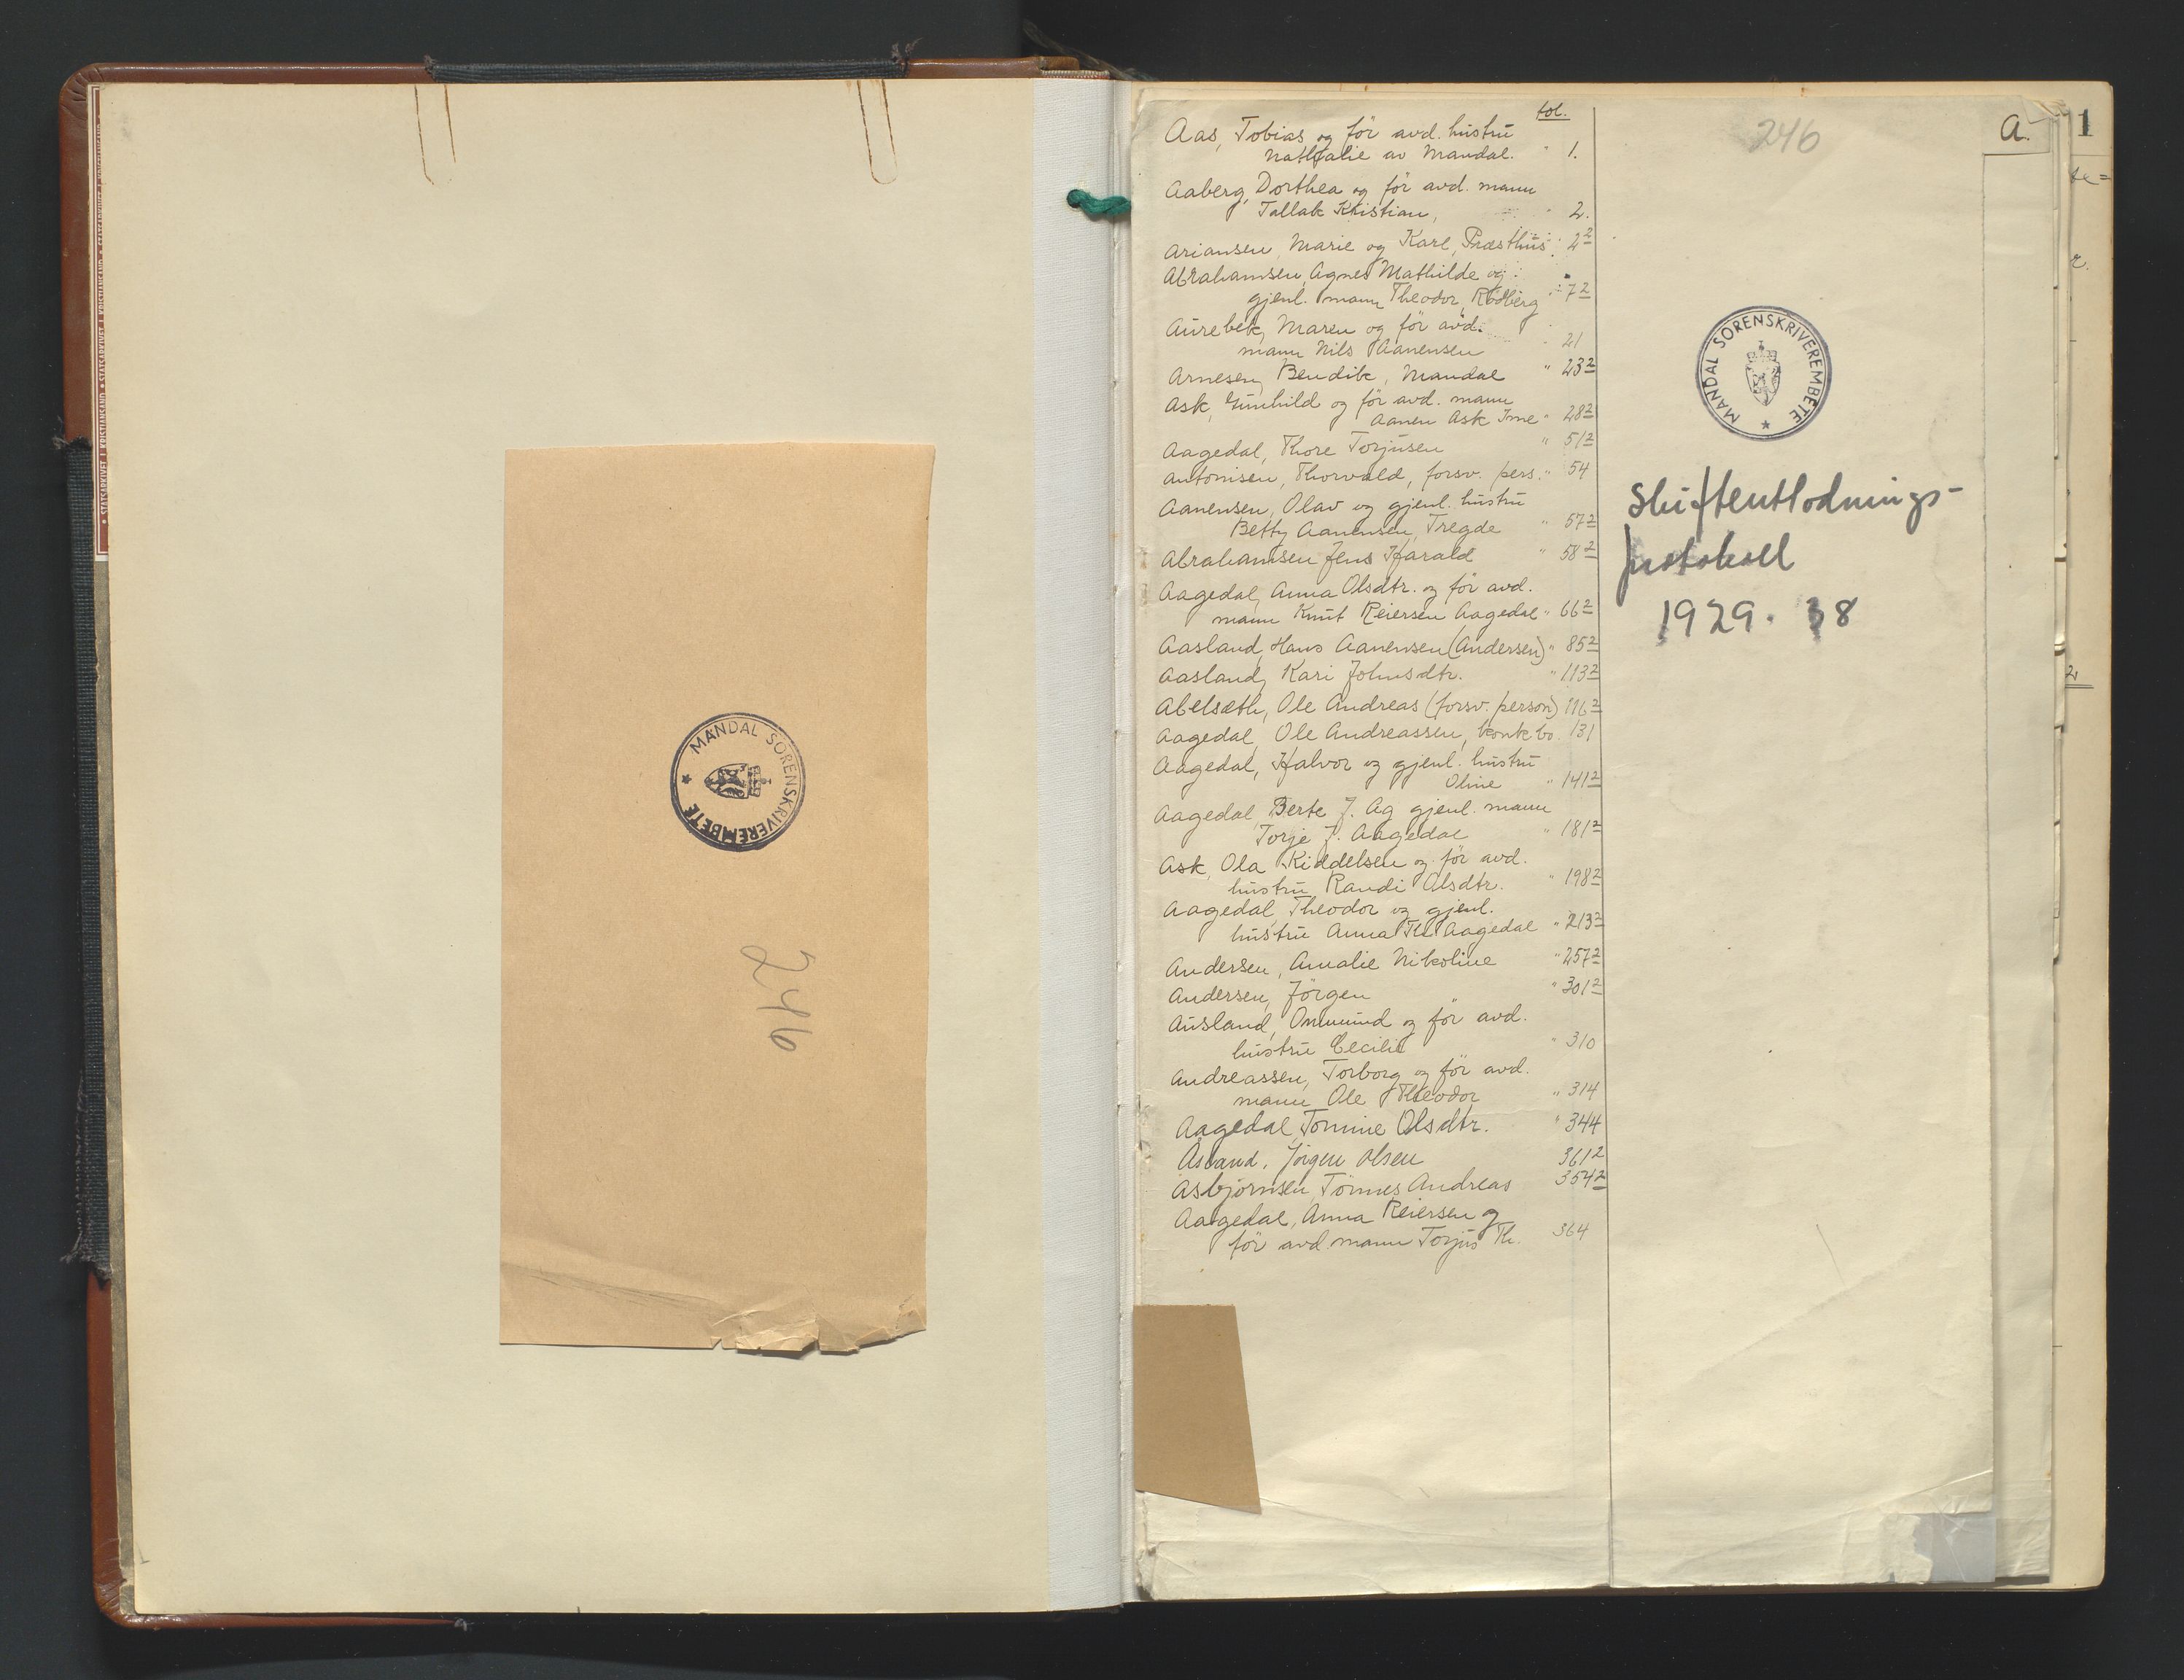 • STATSARKIVET I KRISTIANSAND • STATSARKIVET I KRISTIANSAND • STATSARKIVET I KRISTIANSAND
MANDAL SORENSKRIVEREMBETE
246
fol.
Aas, Tobias og før avd. hustru
Nathalie av Mandal. " 1.
Aaberg, Dorthea og før avd. mann
Tallak Kristian, " 2.
Ariansen, Marie og Karl, Præsthus " 2 2
Abrahamsen, Agnes Mathilde og
gjenl. mann Theodor, Rödberg " 7 2
Aurebek, Maren og før avd.
mann Nils Aanensen " 21
Arnesen, Bendik, Mandal " 23 2
Ask, Gunhild og før avd. mann
Aanen Ask Ime " 28 2
Aagedal, Thore Torjusen " 51 2
Antonisen, Thorvald, forsv. pers. " 54
Aanensen, Olav og gjenl. hustru
Betty Aanensen, Tregde " 57 2
Abrahamsen Jens Harald " 58 2
Aagedal, Anna Olsdtr. og før avd.
mann Knut Reiersen Aagedal " 66 2
Aasland, Hans Aanensen (Andersen) " 85 2
Aasland, Kari Johnsdtr. " 113 2
Abelsæth, Ole Andreas (forsv. person) 116 2
Aagedal, Ole Andreassen, konk bo. 131
Aagedal, Halvor og gjenl. hustru
Oline " 141 2
Aagedal, Berte J. Ag gjenl. mann
Torje J. Aagedal " 181 2
Ask, Ola Kiddelsen og før avd.
hustru Randi Olsdtr. " 198 2
Aagedal, Theodor og gjenl.
hustru Anna Th. Aagedal " 213 2
Andersen, Amalie Nikoline " 257 2
Andersen, Jörgen " 301 2
Ausland, Onmund og før avd.
hustru Cecilie " 310
Andreassen, Torborg og før avd.
mann Ole Theodor " 314
Aagedal, Tomine Olsdtr. " 344
Jörgen Olsen 361 2
Asbjörnsen, Tönnes Andreas 354 2
Aagedal, Anna Reiersen og
før avd. mann Torjus Th. 364
246
A.
1
MANDAL SORENSKRIVEREMBETE
Skifteutlodnings-
protokoll
1929. 38